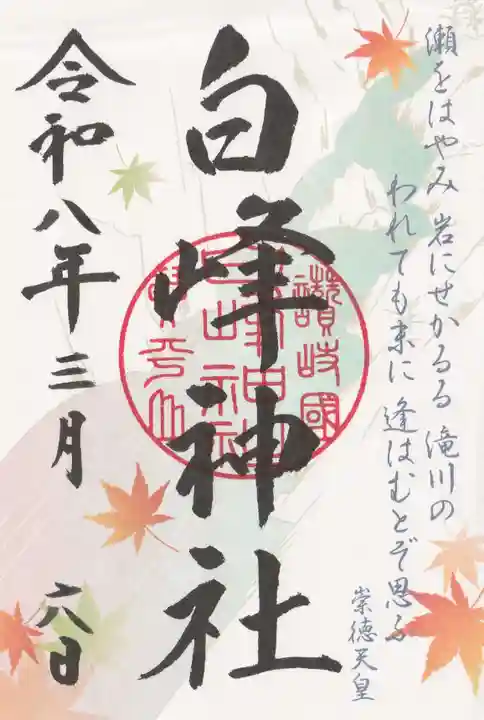 瀬をはやみ 岩にせかるる 滝川の
われても末に 逢はむとぞ思ふ
崇徳天皇
白峰神社
讃岐國
令和八年三月
六日